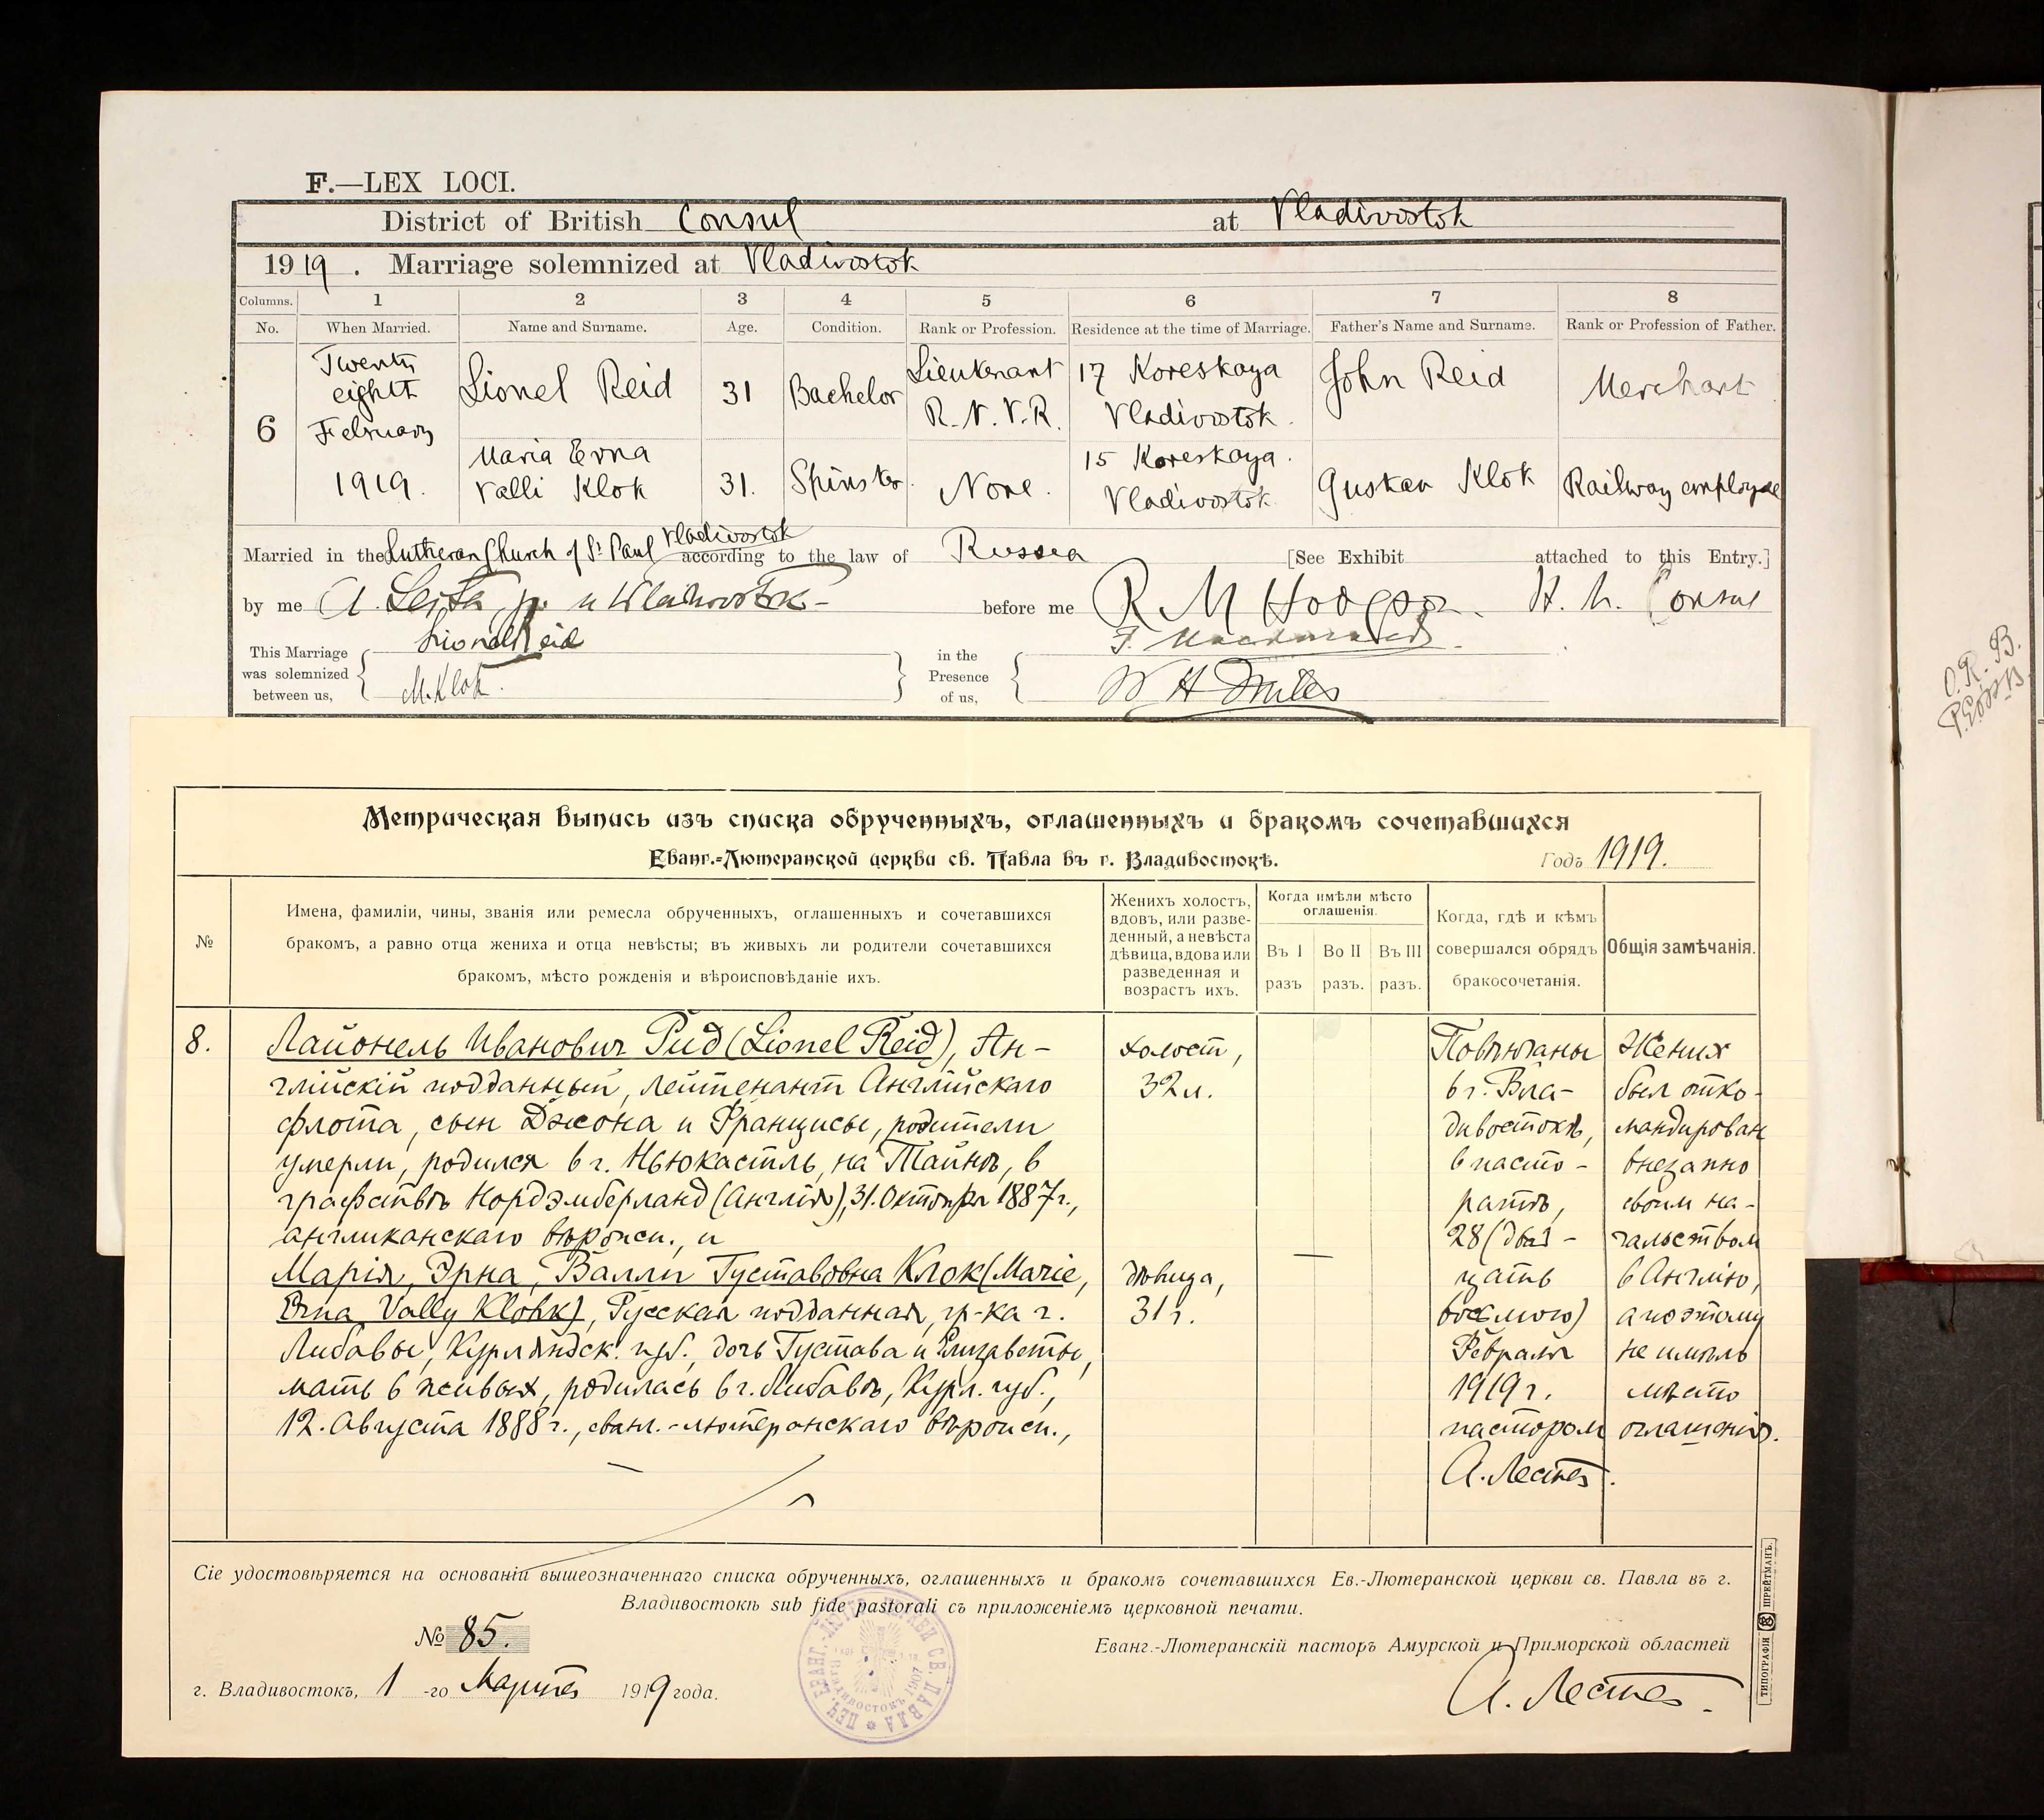 F.—LEX LOCI.
District of British Consul at Vladivostok
1919. Marriage solemnized at Vladivostok
Columns. 1 2 3 4 5 6 7 8
No. When Married. Name and Surname. Age. Condition. Rank or Profession. Residence at the time of Marriage. Father's Name and Surname. Rank or Profession of Father.
6
Twenty
eighth
February
1919.
Lionel Reid 31 Bachelor
Lieutenant
R.N.V.R.
17 Koreskaya
Vladivostok.
John Reid Merchant
Maria Erna
Valli Klok
31. Spinster. None.
15 Koreskaya.
Vladivostok
Gustav Klok Railway employee
Married in the Lutheran Church of St Paul Vladivostok according to the law of Russia [See Exhibit attached to this Entry.]
by me before me R M Hodgson. H.M. Consul
This Marriage
was solemnized
between us,
Lionel Reid
M. Klok.
in the
Presence
of us,
W H
O.R.B.
Метрическая выпись изъ списка обрученныхъ, оглашенныхъ и бракомъ сочетавшихся
Еванг.-Лютеранской церкви св. Павла въ г. Владивостокѣ. Годъ 1919.
№
Имена, фамиліи, чины, званія или ремесла обрученныхъ, оглашенныхъ и сочетавшихся
бракомъ, а равно отца жениха и отца невѣсты; въ живыхъ ли родители сочетавшихся
бракомъ, мѣсто рожденія и вѣроисповѣданіе ихъ.
Женихъ холостъ,
вдовъ, или разве-
денный, а невѣста
дѣвица, вдова или
разведенная и
возрастъ ихъ.
Когда имѣли мѣсто
оглашенія.
Въ I
разъ
Во II
разъ.
Въ III
разъ.
Когда, гдѣ и кѣмъ
совершался обрядъ
бракосочетанія.
Общія замѣчанія.
8.
Лайонель Иванович Рид (Lionel Reid), Ан-
глійскій подданный, лейтенант Англійскаго
флота, сын Джона и Францисы, родители
умерли, родился в г. Ньюкастль, на Тайнѣ, в
графствѣ Нордэмберланд (Англія), 31. Октября 1887 г.,
англиканскаго вѣроисп., и
Марія, Эрна, Валли Густавовна Клок (Marie,
Erna, Vally Klohk), Русская подданная, гр-ка г.
Либавы, Курляндск. губ., дочь Густава и Елизаветы,
мать в живых, родилась в г. Либавѣ, Курл. губ.,
12. Августа 1888 г., еванг.-лютеранскаго вѣроисп.,
холост,
32 л.
дѣвица,
31 г.
Повѣнчаны
в г. Вла-
дивостокѣ,
в пасто-
ратѣ,
28 (два-
цать
восьмого)
Февраля
1919 г.
пастором
А. Лестa.
Жених
был отко-
мандирован
внезапно
своим на-
чальством
в Англію,
а поэтому
не имѣло
мѣсто
оглашенія.
Сіе удостовѣряется на основаніи вышеозначеннаго списка обрученныхъ, оглашенныхъ и бракомъ сочетавшихся Ев.-Лютеранской церкви св. Павла въ г.
Владивостокѣ sub fide pastorali съ приложеніемъ церковной печати.
№ 85.
Еванг.-Лютеранскій пасторъ Амурской и Приморской областей
г. Владивостокъ, 1-го Марта 1919 года.
А. Леста.
ПЕЧ. ЕВАНГ. ЛЮТЕР. ЦЕРКВИ СВ. ПАВЛА
ВЛАДИВОСТОКЪ 1907
ТИПОГРАФІЯ ШРЕЙТМАНЪ.